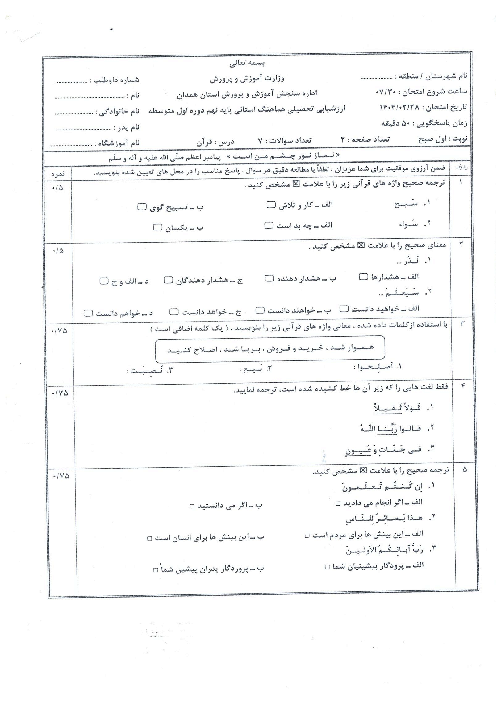 بسمه تعالی
نام شهرستان / منطقه : ............
وزارت آموزش و پرورش
شماره داوطلب : ............
ساعت شروع امتحان : ۰۷/۳۰
اداره سنجش آموزش و پرورش استان همدان
نام : ............
تاریخ امتحان : ۱۴۰۳/۰۲/۲۸
ارزشیابی تحصیلی هماهنگ استانی پایه نهم دوره اول متوسطه
نام خانوادگی : ............
زمان پاسخگویی : ۵۰ دقیقه
نام پدر : ............
نوبت : اول صبح
تعداد صفحه : ۲
تعداد سوالات : ۷
درس : قرآن
نام آموزشگاه : ............
« نماز نور چشم من است » پیامبر اعظم صلی الله علیه و آله و سلم
ضمن آرزوی موفقیت برای شما عزیزان ، لطفاً با مطالعه دقیق هر سوال ، پاسخ مناسب را در محل های تعیین شده بنویسید.
نمره
۱
ترجمه صحیح واژه های قرآنی زیر را با علامت ☒ مشخص کنید.
۰/۵
الف – کار و تلاش □ ب – تسبیح گوی □
۲. سَواء الف – چه بد است □ ب – یکسان □
۲
معنای صحیح را با علامت ☒ مشخص کنید .
۰/۵
۱. نُذُر ..
الف – هشدارها □ ب – هشدار دهنده □ ج – هشدار دهندگان □ د – الف و ج □
۲. سَیَعلَمُ ..
الف – خواهید دانست □ ب – خواهند دانست □ ج – خواهد دانست □ د – خواهم دانست □
۳
با استفاده از کلمات داده شده ، معانی واژه های قرآنی زیر را بنویسید . ( یک کلمه اضافی است )
۰/۷۵
هموار شد ، خرید و فروش ، برپا شد ، اصلاح کنید
۱. أَصلِحوا : ۲. بَیع : ۳. نُصِبَت :
۴
فقط لغت هایی را که زیر آن ها خط کشیده شده است، ترجمه نمایید.
۰/۷۵
۱. قَولاً ثَقیلاً
۲. قالوا رَبُّنَا اللهُ
۳. فی جَنّاتٍ وَ عُیونٍ
۵
ترجمه صحیح را با علامت ☒ مشخص کنید.
۰/۷۵
۱. إِن کُنتُم تَعلَمونَ
الف – اگر انجام می دادید □ ب – اگر می دانستید □
۲. هذا بَصائِرُ لِلنّاسِ
الف – این بینش ها برای مردم است □ ب – این بینش ها برای انسان است □
۳. رَبُّ آبائِکُمُ الأَوَّلینَ
الف – پرودگار پیشینیان شما □ ب – پروردگار پدران پیشین شما □